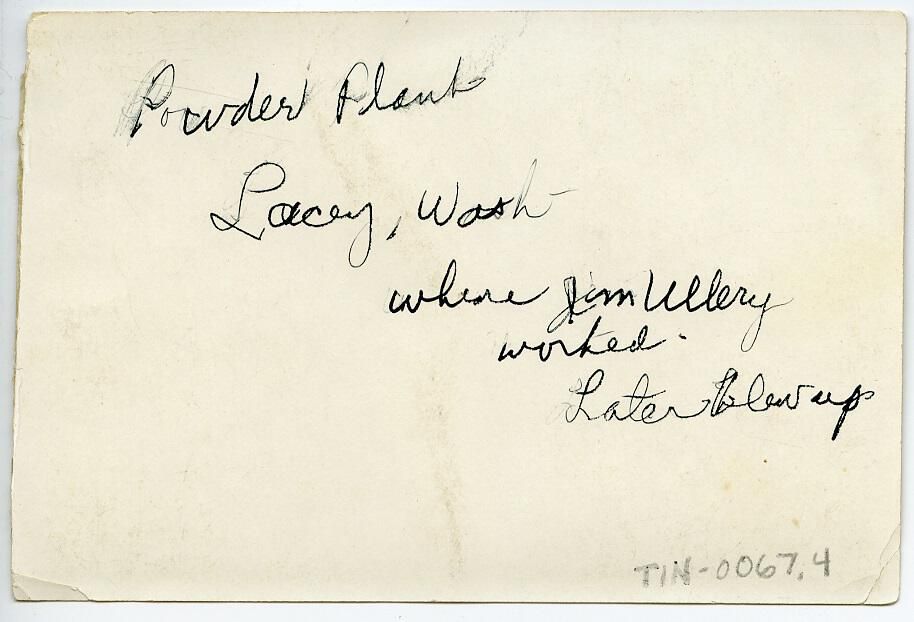 Powder Plant
Lacey, Wash
where Jim Ullery
worked.
Later Blew up
TIN-0067.4